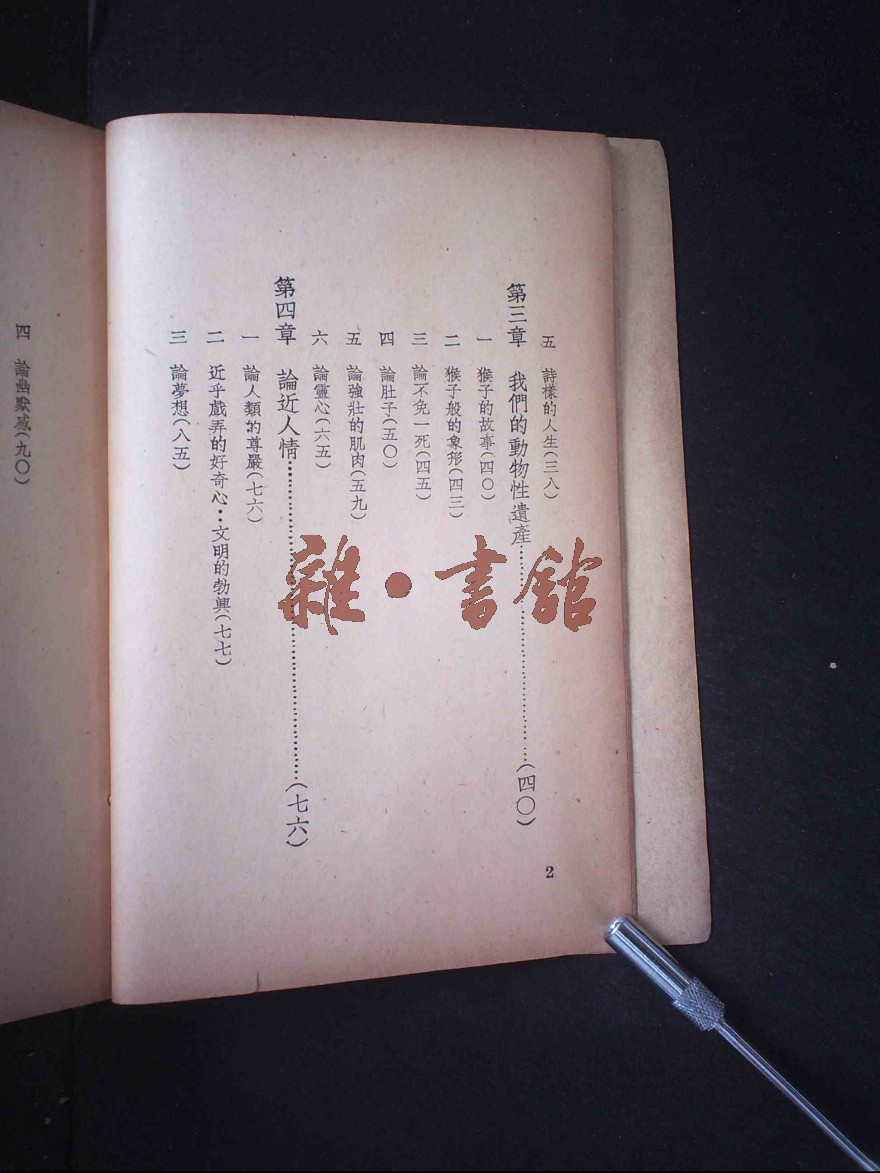 五　詩樣的人生(三八)
第三章　我們的動物性遺產……(四〇)
一　猴子的故事(四〇)
二　猴子般的象形(四三)
三　論不免一死(四五)
四　論肚子(五〇)
五　論強壯的肌肉(五九)
六　論靈心(六五)
第四章　論近人情……(七六)
一　論人類的尊嚴(七六)
二　近乎戲弄的好奇心：文明的勃興(七七)
三　論夢想(八五)
2
四　論幽默感(九〇)
雜·書館